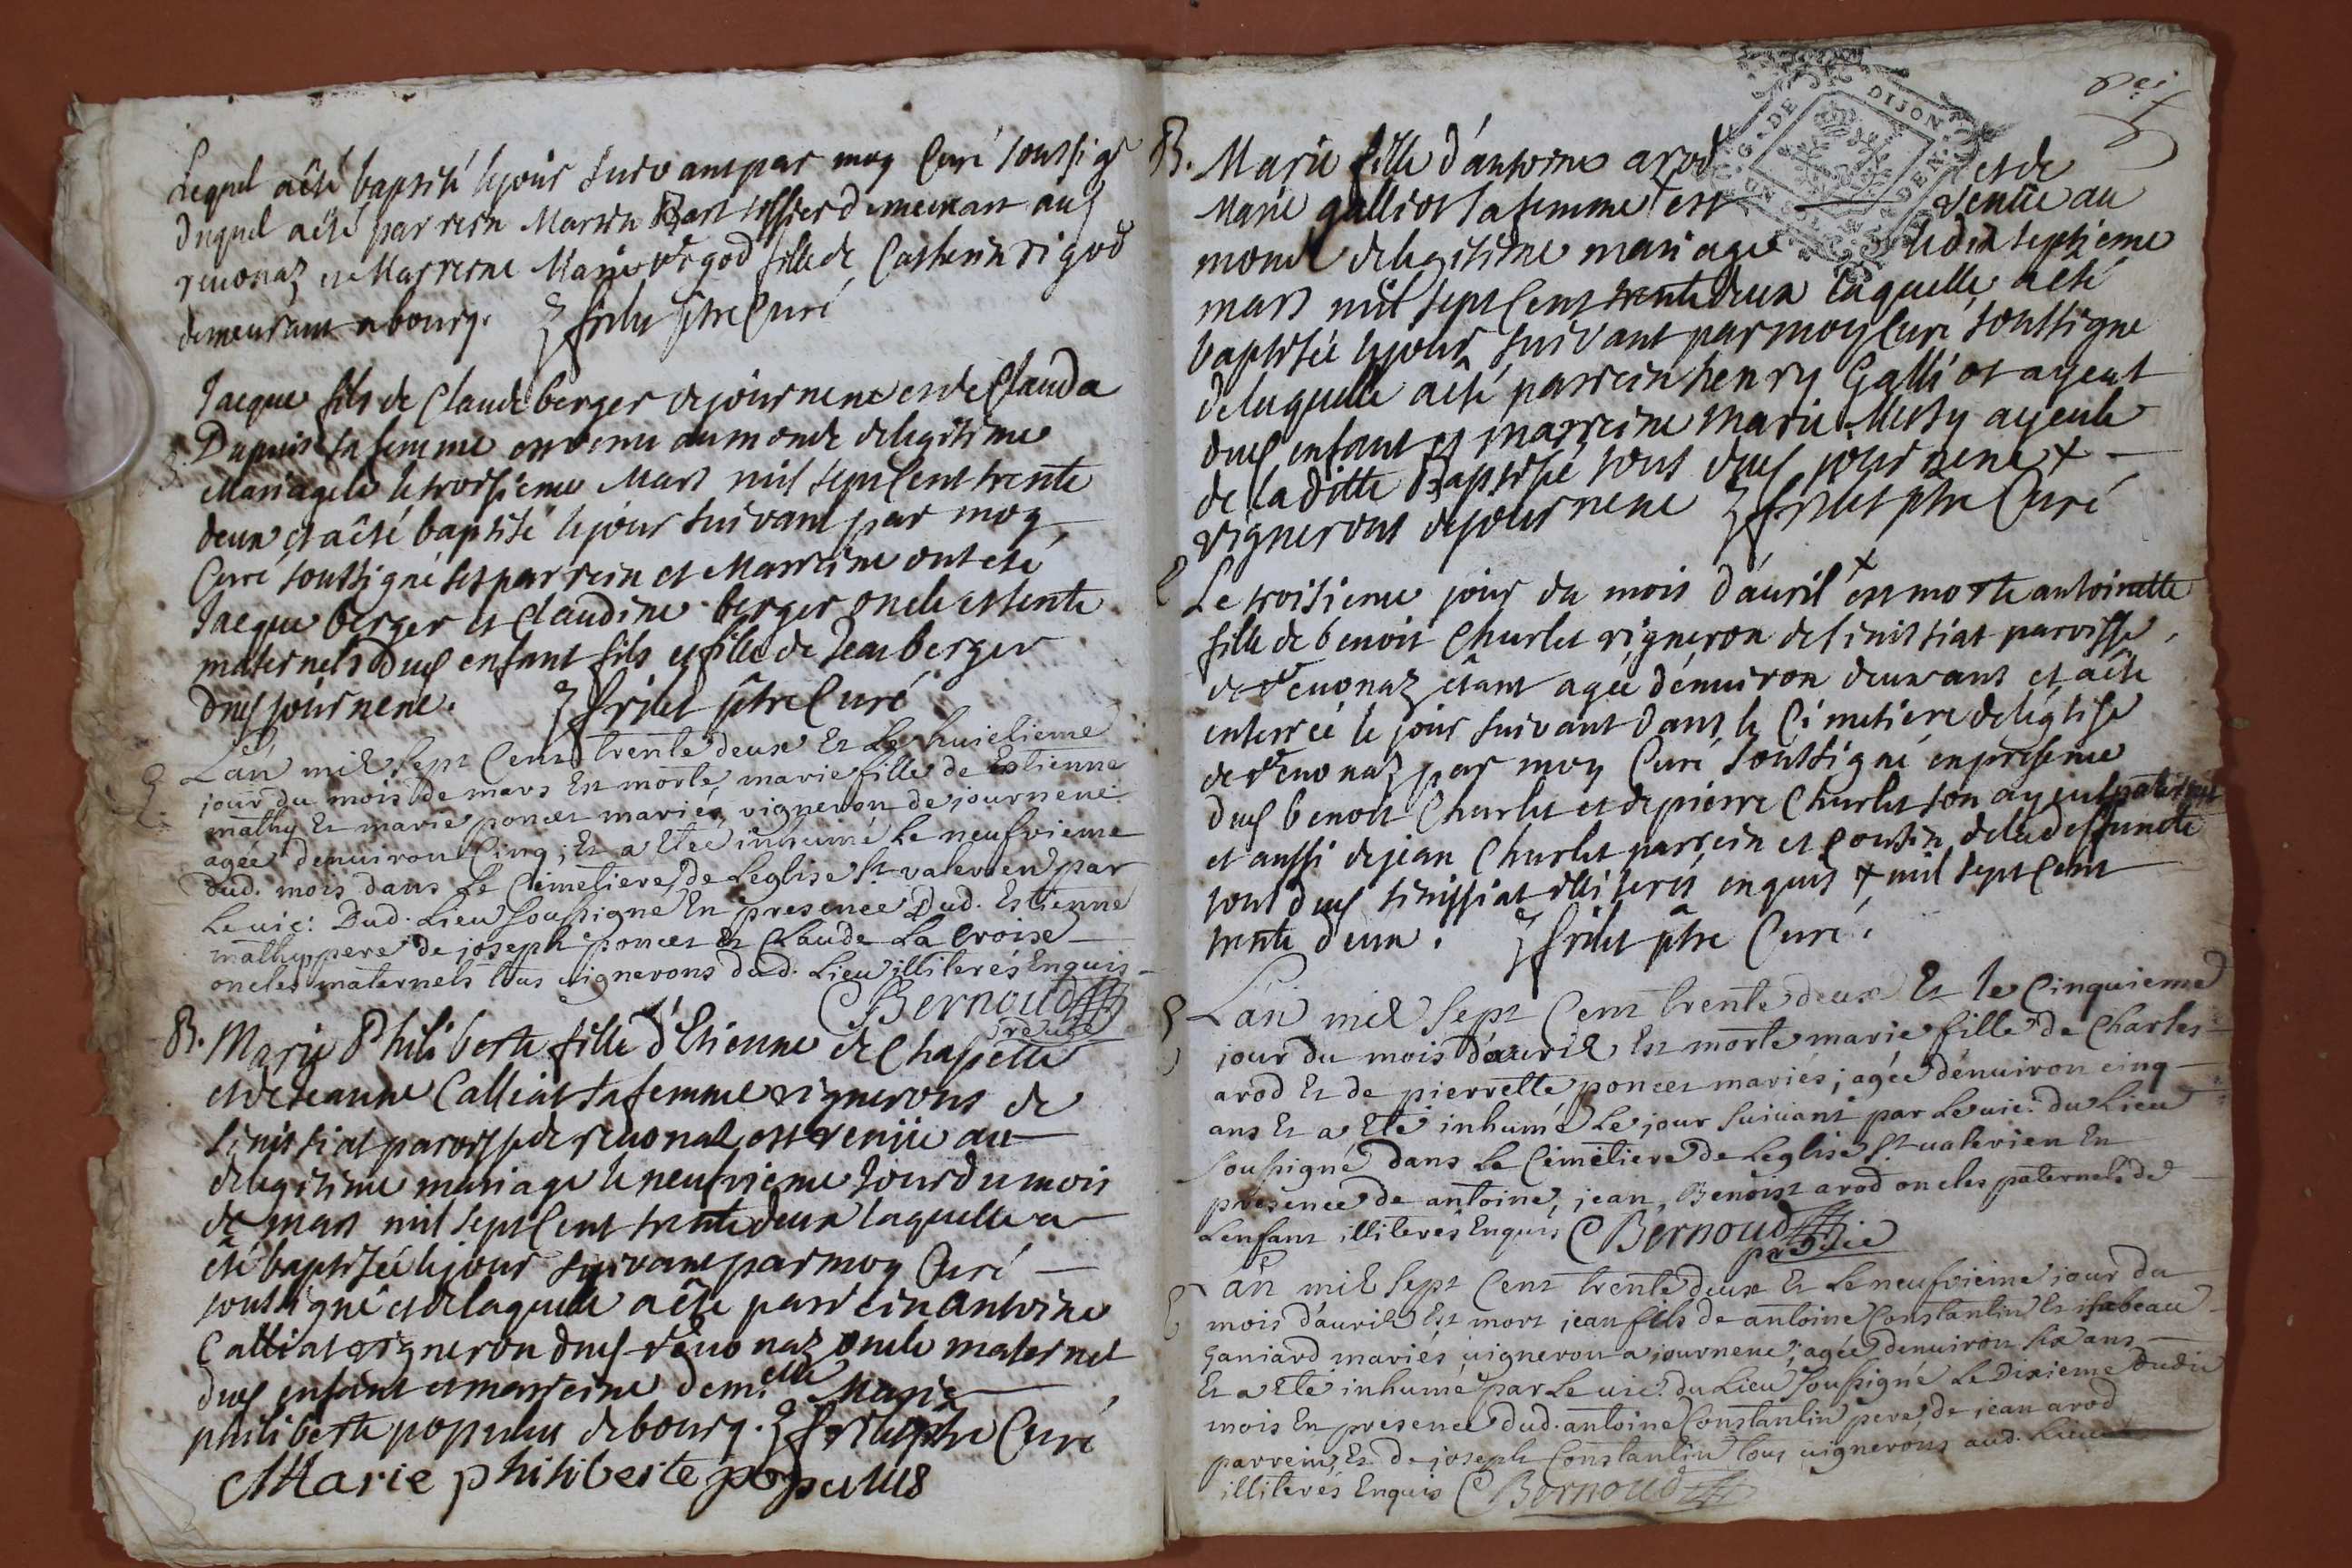 Lequel a êté baptisé le jour suivant par moy Curé soussigé
duquel a êté parrein Martin Bart tissier demeurant aud
reuonaz et Marreine Marie rigod fille de Catherin rigod
demeurant a bourg. frilet ptre Curé
Jacque fils de Claude berger de journene et de Clauda
Dupuis sa femme est venu au monde de legitime
Mariage le troisieme Mars mil sept Cent trente
deux et a êté baptisé le jour suivant par moy
Curé soussigné ses parrein et Marreine ont eté
Jacque berger et Claudine berger oncle et tente
maternels dud enfant fils et fille de Jean berger
dud journene. frilet ptre Curé
L'an mil sept Cent trente deux Et Le huictieme
jour du mois de mars Est morte marie fille de Estienne
mathy Et marie poncet mariés vigneron de journene
agée denuiron Cinq ; Et a Eteé inhumé Le neufvieme
dud. mois dans Le Cimetiere de Leglise St valerien par
Le uic: Dud. Lieu soussigné En presence Dud. Estienne
mathy pere de joseph poncet Et Claude La Croise
oncles maternels tous vignerons dud. Lieu illiterés Enquis
C Bernoud
B. Marie Philiberte fille d'Etienne de Chapelle
et de Jeanne Calliat sa femme vignerons de
sinissiat paroisse de reuonaz est venüe au
de legitime mariage le neufvieme Jour du mois
de mars mil sept Cent trente deux laquelle a
été baptisée le jour suivant par moy Curé
soussigné et de laquelle a êté parrein antoine
Calliat vigneron dud reuonaz oncle maternel
dud enfant et marreine dem.elle Marie
philiberte populus de bourg. frilet ptre Curé
Marie philiberte populus
B. Marie fille d'antoine arod et de
Marie galliot sa femme est venüe au
monde de legitime mariage le dix septieme
mars mil sept Cent trente deux laquelle a êté
baptisée le jour suivant par moy Curé soussigné
de laquelle a êté parrein henry Galliot ayeul
dud enfant et marreine marie Methy ayeule
de la ditte Baptisée tous dud journene +
vignerons de journene frilet ptre Curé
Le troisieme jour du mois d'auril + est morte antoinette
fille de benoit Churlet vigneron de sinissiat paroisse
de reuonaz êtant agée d'enuiron deux ans et a êté
enterrée le jour suivant dans le Cimetiere de l'eglise
de reuonaz par moy Curé soussigné en presence
dud benoit Churlet et de pierre Churlet son ayeul paternel
et aussi de jean Churlet parrein et Cousin de la deffuncte
tous dud sinissiat illiterés enquis + mil sept Cent
trente deux. frilet ptre Curé.
L'an mil sept Cent trente deux Et le Cinquieme
jour du mois d'auril Est morte marie fille de Charles
arod Et de pierrette poncet mariés ; agée denuiron cinq
ans Et a Eté inhumé Le jour suiuant par Le uic. du Lieu
soussigné dans Le Cimetiere de Leglise St ualerien En
presence de antoine, jean, Benoist arod oncles paternels de
Lenfant illiterés Enquis C Bernoud
L'an mil sept Cent trente deux Et Le neufvieme jour du
mois d'auril Est mort jean fils de antoine Constantin Et isabeau
Ganiard mariés uigneron a journene ; agée denuiron six ans
Et a Eté inhumé par Le uic. du Lieu soussigné Le Dixieme Dudit
mois En presence dud. antoine Constantin pere, de jean arod
parrein, Et de joseph Constantin tous uignerons aud. Lieu
illiterés Enquis C Bernoud
G. DE DIJON
UN SOL
DEN.